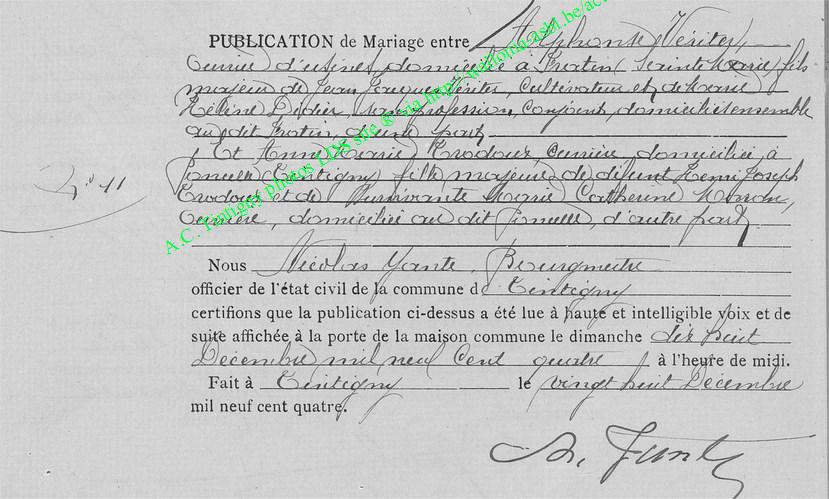 PUBLICATION de Mariage entre Alphonse Vériter,
Ouvrier d'usines, domicilié à Fratin (Sainte Marie) fils
majeur de Jean Jacques Vériter, Cultivateur et de Marie
Hélène Didier, sans profession, Conjoints, domiciliés ensemble
au dit Fratin, d'une part
Et Anne Marie Trodoux, Ouvrière, domiciliée à
(Tintigny) fille majeure de défunt Henri Joseph
Trodoux et de Survivante Marie Catherine
Ouvrière, domiciliée au dit d'autre part
N° 11
Nous Nicolas Yante, Bourgmestre
officier de l'état civil de la commune de Tintigny
certifions que la publication ci-dessus a été lue à haute et intelligible voix et de
suite affichée à la porte de la maison commune le dimanche dix huit
Décembre mil neuf cent quatre, à l'heure de midi.
Fait à Tintigny le vingt huit Décembre
mil neuf cent quatre.
N. Yante
A.C. Tintigny photos LDS site © via http://welloma-asbl.be/ac